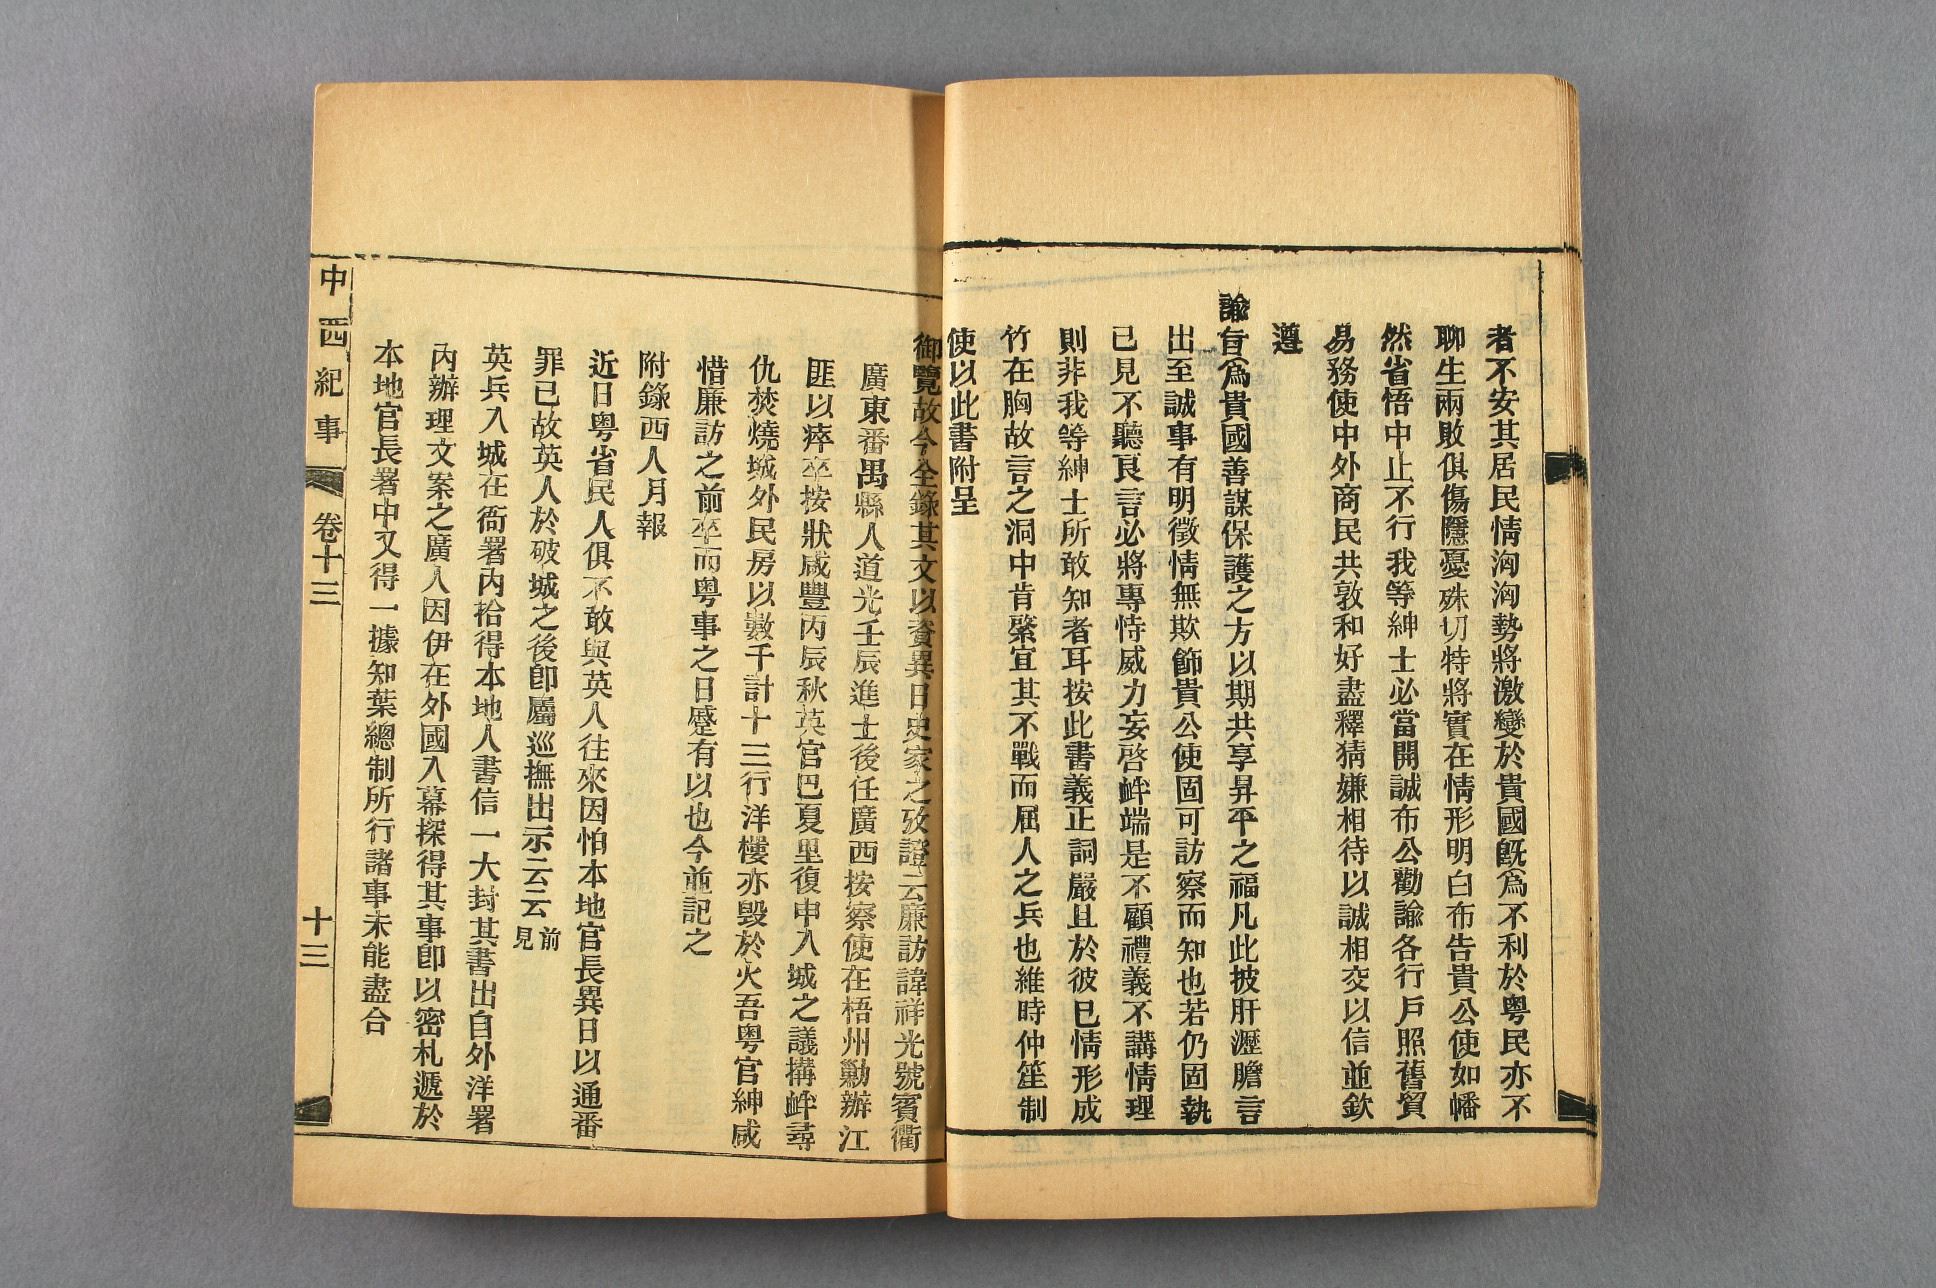 者不安其居民情洶洶勢將激變於貴國旣爲不利於粤民亦不
聊生兩敗俱傷隱憂殊切特將實在情形明白布告貴公使如幡
然省悟中止不行我等紳士必當開誠布公勸諭各行戶照舊貿
易務使中外商民共敦和好盡釋猜嫌相待以誠相交以信並欽
遵
諭旨爲貴國善謀保護之方以期共享昇平之福凡此披肝瀝膽言
出至誠事有明徵情無欺飾貴公使固可訪察而知也若仍固執
已見不聽良言必將專恃威力妄啓衅端是不顧禮義不講情理
則非我等紳士所敢知者耳按此書義正詞嚴且於彼已情形成
竹在胸故言之洞中肯綮宜其不戰而屈人之兵也維時仲笙制
使以此書附呈
御覽故今全錄其文以資異日史家之攷證云廉訪諱祥光號賓衢
廣東番禺縣人道光壬辰進士後任廣西按察使在梧州勦辦江
匪以瘁卒按狀咸豐丙辰秋英官巴夏里復申入城之議搆衅尋
仇焚燒城外民房以數千計十三行洋樓亦毀於火吾粤官紳咸
惜廉訪之前卒而粤事之日蹙有以也今並記之
附錄西人月報
近日粤省民人俱不敢與英人往來因怕本地官長異日以通番
罪已故英人於破城之後卽屬巡撫出示云云前見
英兵入城在衙署內拾得本地人書信一大封其書出自外洋署
內辦理文案之廣人因伊在外國入幕探得其事卽以密札遞於
本地官長署中又得一據知葉總制所行諸事未能盡合
中西紀事
卷十三
十三